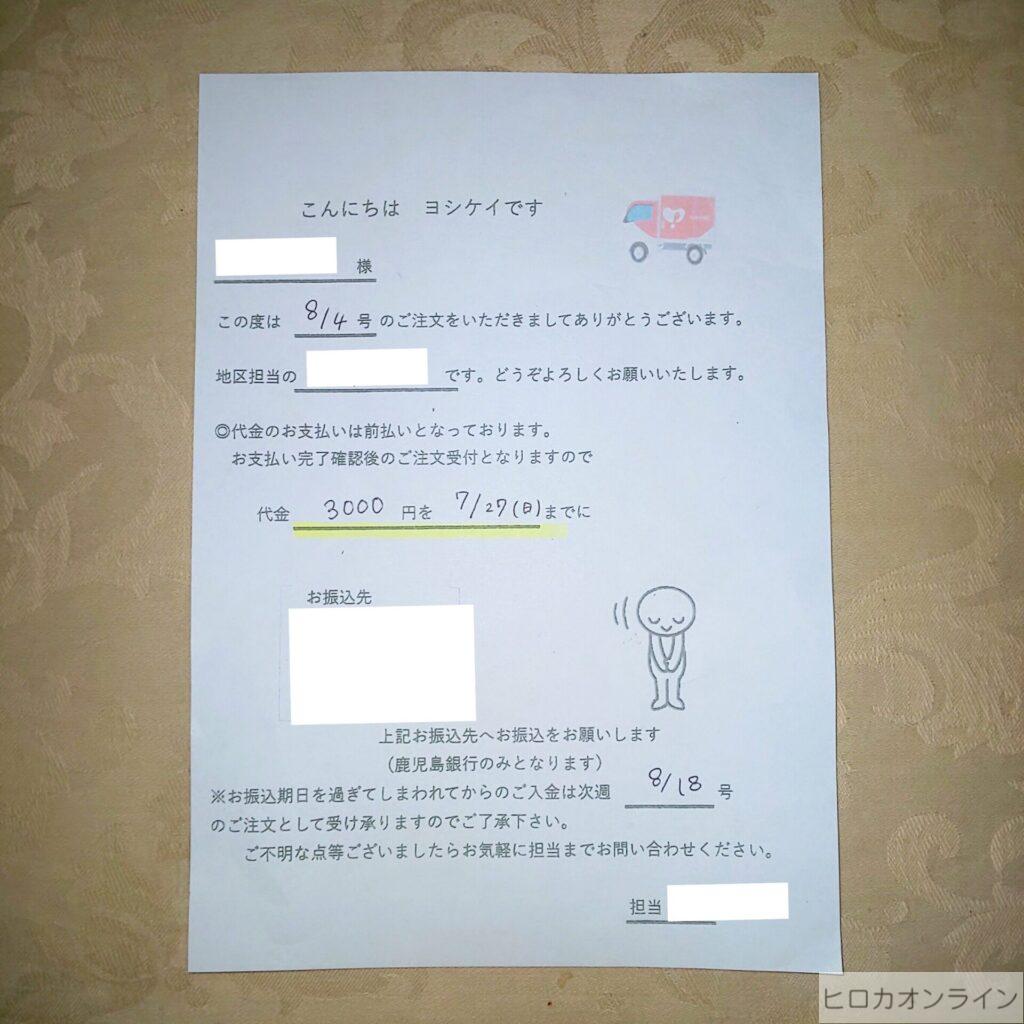 こんにちは　ヨシケイです
様
この度は 8/4 号 のご注文をいただきましてありがとうございます。
地区担当の です。どうぞよろしくお願いいたします。
◎代金のお支払いは前払いとなっております。
お支払い完了確認後のご注文受付となりますので
代金 3000 円を 7/27(日)までに
お振込先
上記お振込先へお振込をお願いします
（鹿児島銀行のみとなります）
※お振込期日を過ぎてしまわれてからのご入金は次週 8/18 号
のご注文として受け承りますのでご了承下さい。
ご不明な点等ございましたらお気軽に担当までお問い合わせください。
担当
ヒロカオンライン